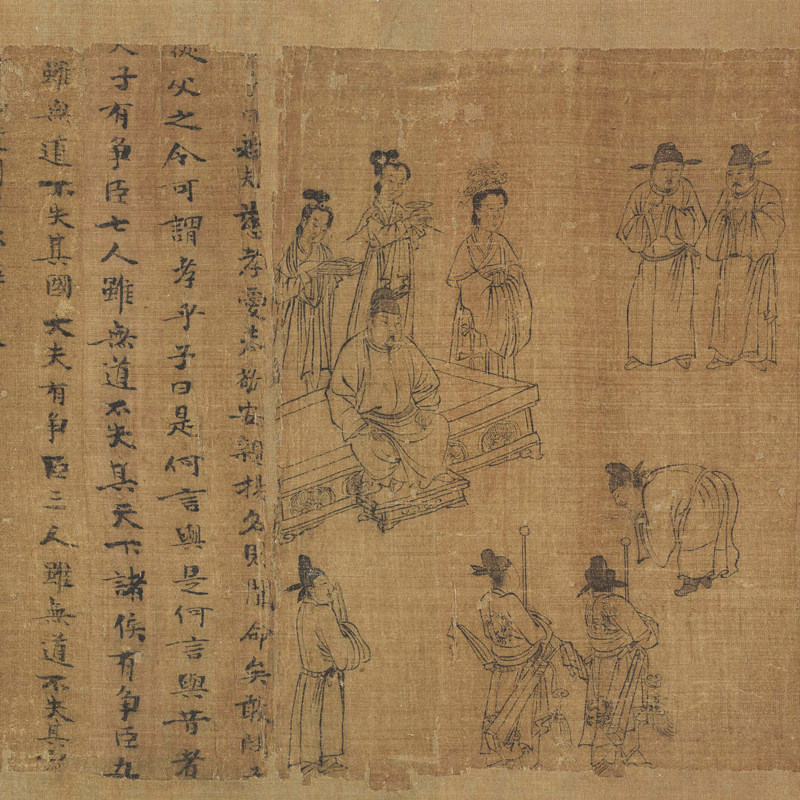 子曰若夫慈孝愛恭敬安親揚名則聞命矣敢問
從父之令可謂孝乎子曰是何言與是何言與昔者
天子有争臣七人雖無道不失其天下諸侯有争臣
雖無道不失其國大夫有争臣三人雖無道不失其家